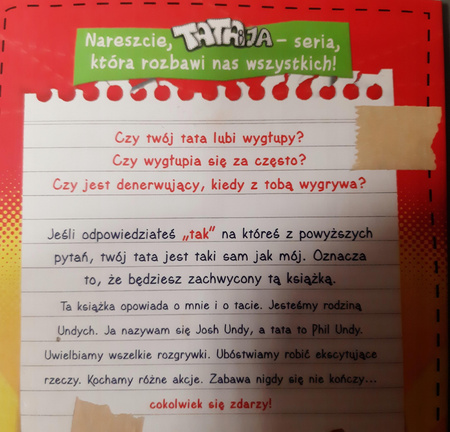 Nareszcie, TATA i JA – seria,
która rozbawi nas wszystkich!
Czy twój tata lubi wygłupy?
Czy wygłupia się za często?
Czy jest denerwujący, kiedy z tobą wygrywa?
Jeśli odpowiedziałeś „tak” na któreś z powyższych
pytań, twój tata jest taki sam jak mój. Oznacza
to, że będziesz zachwycony tą książką.
Ta książka opowiada o mnie i o tacie. Jesteśmy rodziną
Undych. Ja nazywam się Josh Undy, a tata to Phil Undy.
Uwielbiamy wszelkie rozgrywki. Ubóstwiamy robić ekscytujące
rzeczy. Kochamy różne akcje. Zabawa nigdy się nie kończy...
cokolwiek się zdarzy!